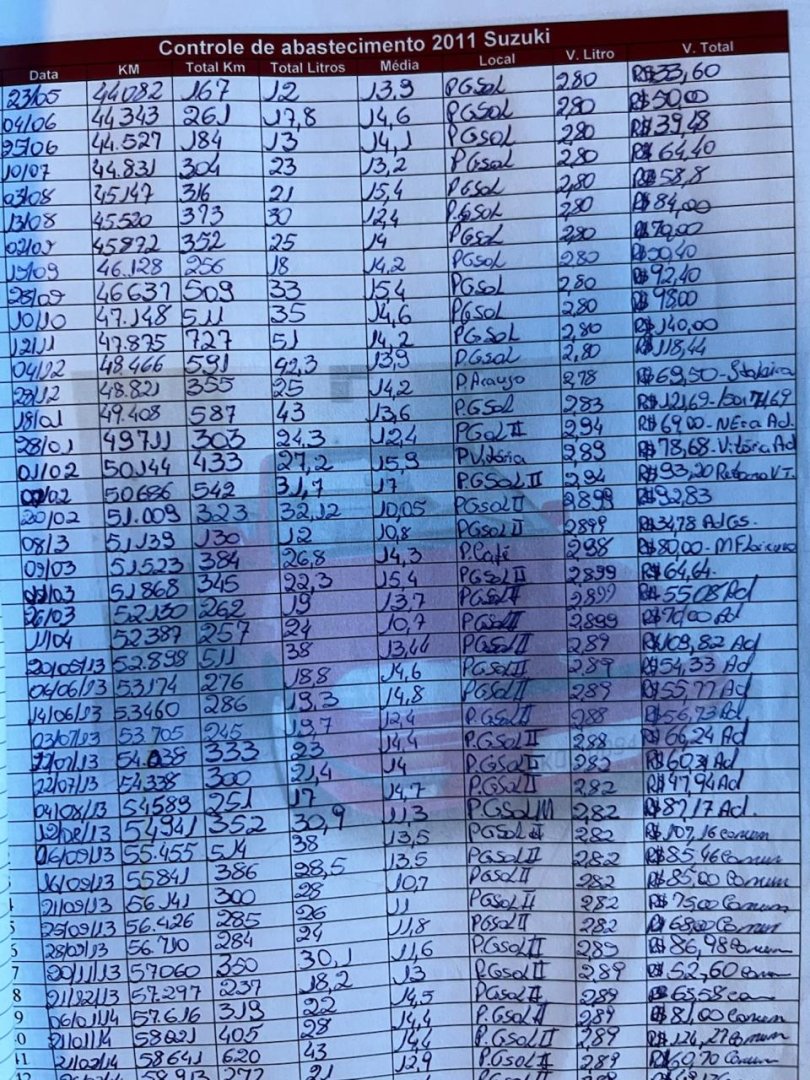 Controle de abastecimento 2011 Suzuki
Data KM Total Km Total Litros Média Local V. Litro V. Total
23/05 44082 167 12 13,9 PGSol 2,80 R$33,60
04/06 44.343 261 17,8 14,6 PGSol 2,80 R$50,00
25/06 44.527 184 13 14,1 PGSol 2,80 R$39,48
10/07 44.831 304 23 13,2 PGSol 2,80 R$64,40
03/08 45147 316 21 15,4 PGSol 2,80 R$58,8
13/08 45.520 373 30 12,4 P.GSol 2,80 R$84,00
02/09 45872 352 25 14 PGSol 2,80 R$70,00
19/09 46.128 256 18 14,2 PGSol 2,80 R$50,40
28/09 46637 509 33 15,4 PGSol 2,80 R$92,40
10/10 47.148 511 35 14,6 PGSol 2,80 R$98,00
12/11 47.875 727 51 14,2 PGSol 2,80 R$140,00
04/12 48.466 591 42,3 13,9 P.Gsol 2,80 R$118,44
28/12 48.821 355 25 14,2 P.Araujo 2,78 R$69,50
18/01 49.408 587 43 13,6 P.GSol 2,83 R$121,69
28/01 49711 303 24.3 12,4 PGol II 2,94 R$69,00 - Ad.
01/02 50.144 433 27,2 15,9 P.Vitória 2,89 R$78,68 - Vitória Ad
02 50686 542 31,7 17 PGSol II 2,94 R$93,20 Retorno VT.
20/02 51.009 323 32,12 10,05 PGsol II 2,899 R$92,83
08/3 51139 130 12 10,8 PGsol II 2899 R$34,78 Ad GS.
09/03 51.523 384 26,8 14,3 P.Café 2,98 R$80,00 - M Floriano
/03 51868 345 22,3 15,4 PGSol II 2,899 R$64,64
26/03 52130 262 19 13,7 PGSol II 2,899 R$55,08 Ad
11/04 52387 257 24 10,7 PGSol II 2899 R$70,00 Ad
20/05/13 52.898 511 38 13,44 PGSol II 2,89 R$109,82 Ad
06/06/13 53174 276 18,8 14,6 PGSol II 2,89 R$54,33 Ad
14/06/13 53460 286 19,3 14,8 PGSol II 289 R$55,77 Ad
03/07/13 53705 245 19,7 12,4 P.GSol II 2,88 R$56,73 Ad
/07/13 54.038 333 23 14,4 P.GSol II 2,88 R$66,24 Ad
22/07/13 54338 300 21,4 14 P.GSol II 2,82 R$60,34 Ad
04/08/13 54589 251 17 14,7 P.GSol II 2,82 R$47,94 Ad
19/08/13 54941 352 30,9 11,3 PGSol M 2,82 R$87,17 Ad.
06/09/13 55.455 514 38 13,5 PGSol II 2,82 R$107,16 comum
16/09/13 55841 386 28,5 13,5 PGSol II 2,82 R$85,46 comum
21/09/13 56.141 300 28 10,7 PGSol II 2,82 R$85,00 Comum
25/09/13 56.426 285 26 11 PGSol II 2,82 R$75,00 Comum
28/09/13 56.710 284 24 11,8 PGSol II 2,82 R$68,00 Comum
7 20/11/13 57060 350 30,1 11,6 PGSol II 2,89 R$86,98 Comum
8 21/12/13 57.297 237 18,2 13 P.GSol II 2,89 R$52,60 Comum
9 06/01/14 57.616 319 22 14,5 PGSol II 2,89 R$63,58 com
21/01/14 58021 405 28 14,4 P.GSol II 2,89 R$81,00 Comum
21/02/14 58641 620 43 14,4 P.GSol II 2,89 R$124,27 Comum
58.913 272 21 12,9 P.GSol II 2,89 R$60,70 Comum